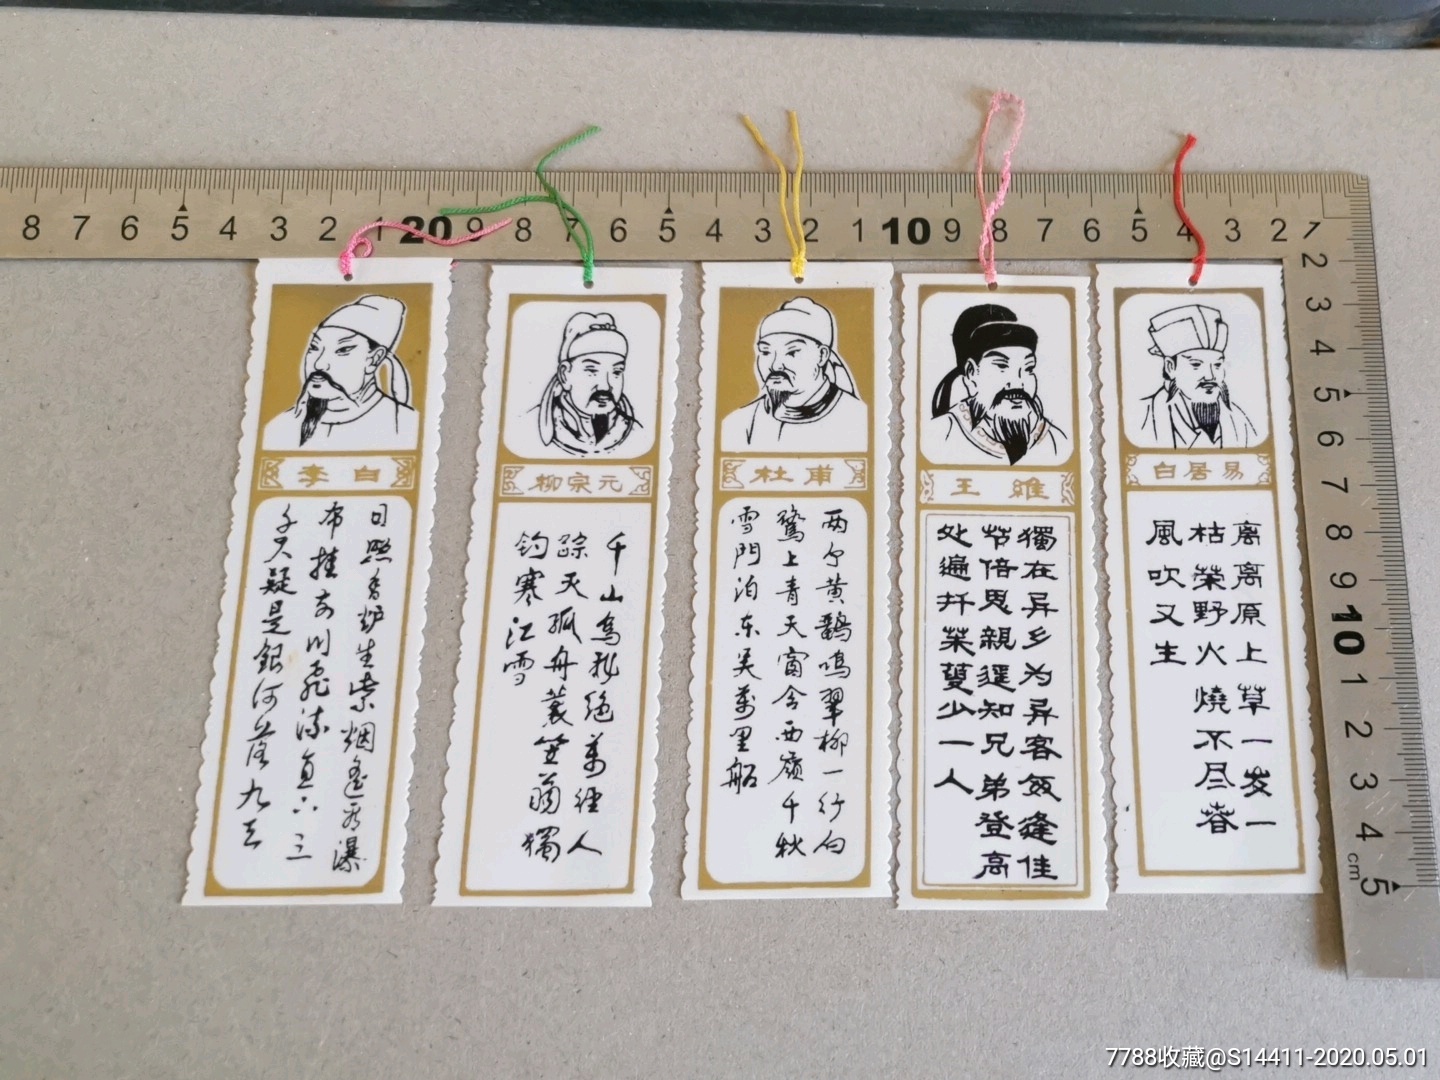 8 7 6 5 4 3 2 1 20 9 8 7 6 5 4 3 2 1 10 9 8 7 6 5 4 3 2 1
2 3 4 5 6 7 8 9 10 1 2 3 4 cm 5
李白
日照香炉生紫烟遥看瀑
布挂前川飞流直下三
千尺疑是銀河落九天
柳宗元
千山鸟飛绝萬径人
踪灭孤舟蓑笠翁獨
钓寒江雪
杜甫
两个黄鹂鸣翠柳一行白
鹭上青天窗含西嶺千秋
雪門泊东吴萬里船
王維
獨在异乡为异客每逢佳
节倍思親遥知兄弟登高
处遍插茱萸少一人
白居易
离离原上草一岁一
枯榮野火燒不尽春
風吹又生
7788收藏@S14411-2020.05.01